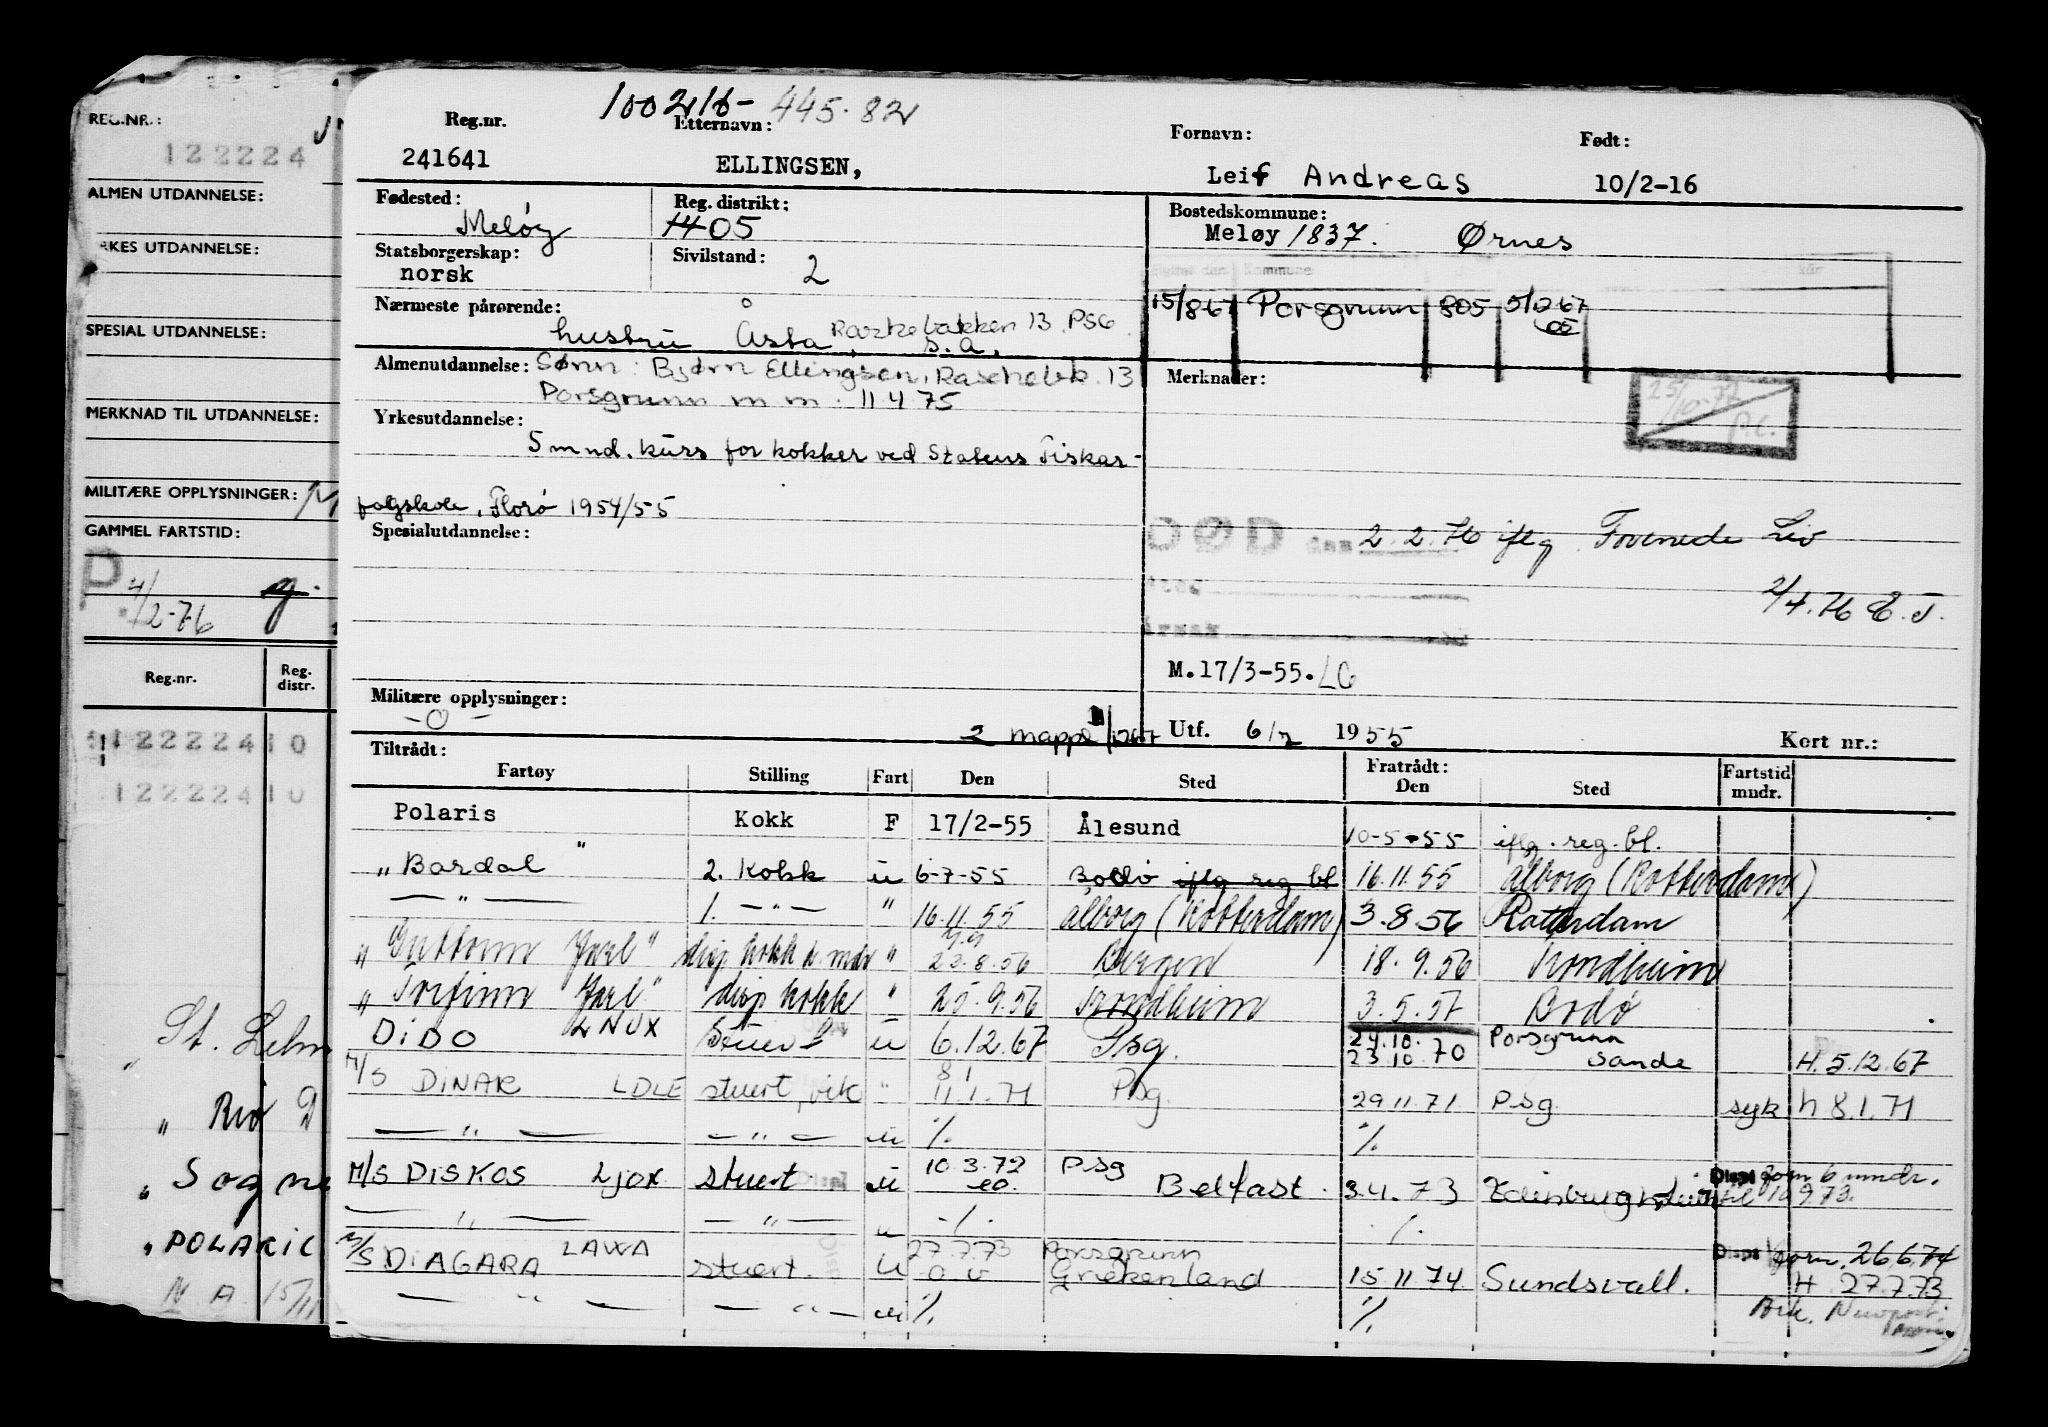 100216-445.82
Reg.nr. Etternavn: Fornavn: Født:
241641 ELLINGSEN, Leif Andreas 10/2-16
Fødested: Meløy Reg. distrikt: 05 Bostedskommune: Meløy 1837. Ørnes
Statsborgerskap: norsk Sivilstand: 2
15/8 67 Porsgrunn 805 5/12 67 05
Nærmeste pårørende: hustru Åsta, Raskebakken 13 PSG
s.a.
Almenutdannelse: Sønn: Bjørn Ellingsen, Raschebk. 13 Merknader:
Porsgrunn m m. 11 4 75
25/10-72 P.C.
Yrkesutdannelse:
5 mnd. kurs for kokker ved Statens Fiskar-
fagskole, Florø 1954/55
Spesialutdannelse:
DØD 2.2.76 iflg. Forenede Liv
2/4.76 E.J.
M.17/3-55. LG
Militære opplysninger:
-0-
2 mappe Utf. 6/7 1955 Kort nr.:
Tiltrådt: Fratrådt: Fartstid mndr.
Fartøy Stilling Fart Den Sted Den Sted
Polaris Kokk F 17/2-55 Ålesund 10-5-55 iflg. reg. bl.
" Bardal " 2. Kokk u 6-7-55 Bodø iflg reg bl 16.11.55 Ålborg (Rotterdam)
— " — 1. — " — " 16.11.55 Ålborg (Rotterdam) 3.8.56 Rotterdam
" Guttorm Jarl" disp kokk u. mdr " 23.8.56 Bergen 18.9.56 Trondheim
" Torfinn Jarl" disp. kokk " 25.9.56 Trondheim 3.5.57 Bodø
DIDO LNUX Stuert u 6.12.67 Psg. 24.10. 23.10.70 Porsgrunn Sande H 5.12.67
M/S DINAR LDLE stuert, vik " 8/ 11.1.71 Psg. 29.11.71 Psg syk h 8.1.71
— " — — " — u ./. ./.
M/S DISKOS LJOX stuert u 10.3.72 eo. Psg Belfast. 3.4.73 Edinburgh Dispt forn 6 mndr. til 10.9.73.
— " — — " — u -/- ./.
M/S DIAGARA LAWA stuert. U 27.7.73 o.v Porsgrunn Griekenland 15.11 74 Sundsvall. Dispt forn. 26.6.74
H 27.7.73
— " — — " — u ./. ./. Ark. Newport.
REG.NR.:
122224
ALMEN UTDANNELSE:
RKES UTDANNELSE:
SPESIAL UTDANNELSE:
MERKNAD TIL UTDANNELSE:
MILITÆRE OPPLYSNINGER: M
GAMMEL FARTSTID:
P. 4/2-76
Reg.nr. Reg. distr.
122224 10
122224 10
" St. Helm
" Rio D
" Sogne
" POLARIC
N.A. 15/11